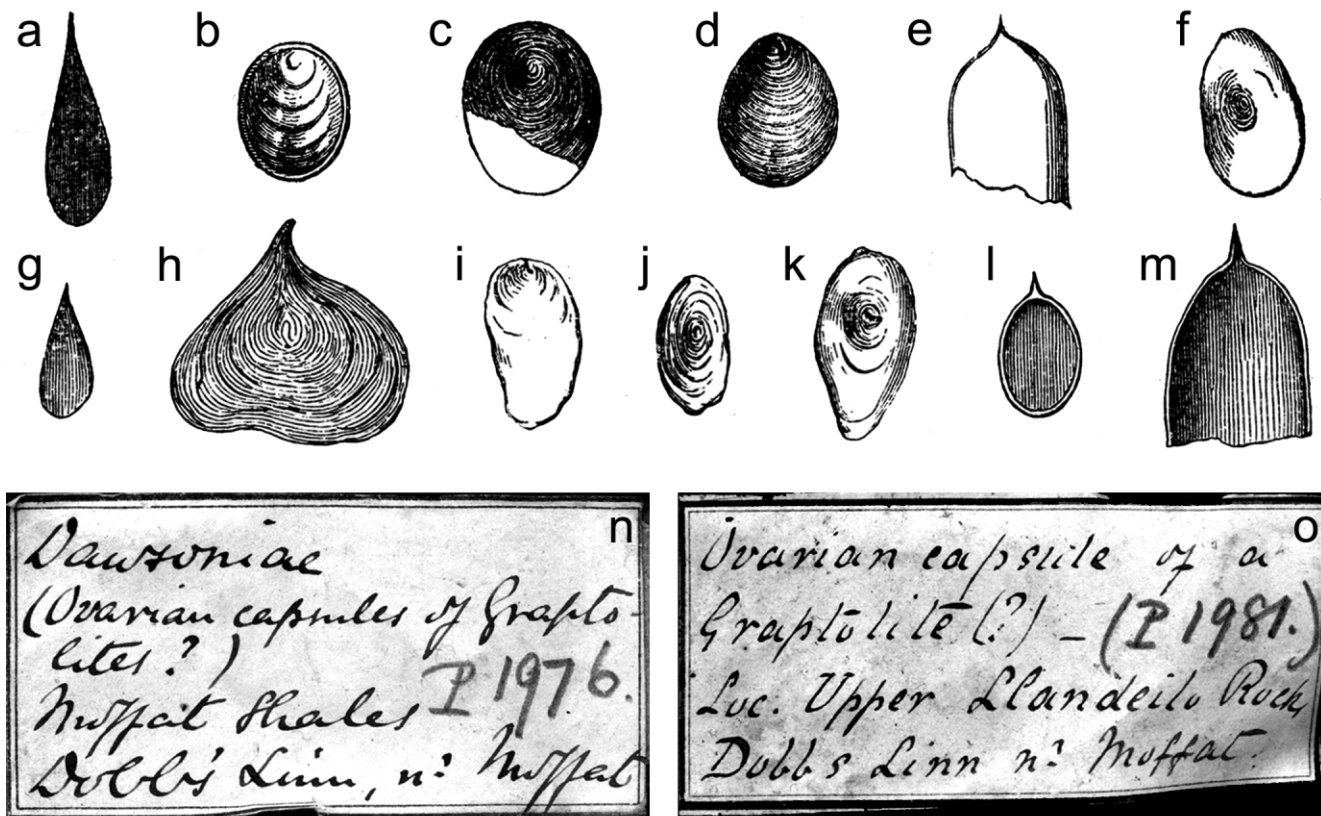 a b c d e f
g h i j k l m
n
Dawsoniae
(Ovarian capsules of Grapto-
lites?)
P 1976.
Moffat Shales
Dobb's Linn, nr Moffat
o
Ovarian capsule of a
Graptolite (?) – (P 1981.)
Loc. Upper Llandeilo Rock,
Dobbs Linn nr Moffat.